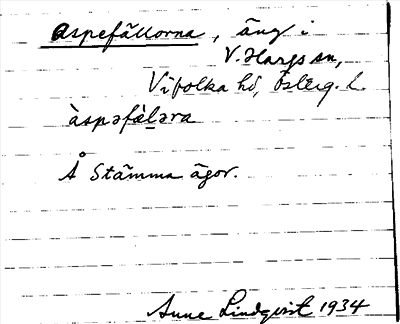 Aspefällorna, äng i
V. Hargs sn,
Vifolka hd, Österg. l.
àspəfæ̀ləra
Å Stämma ägor.
Anne Lindqvist 1934